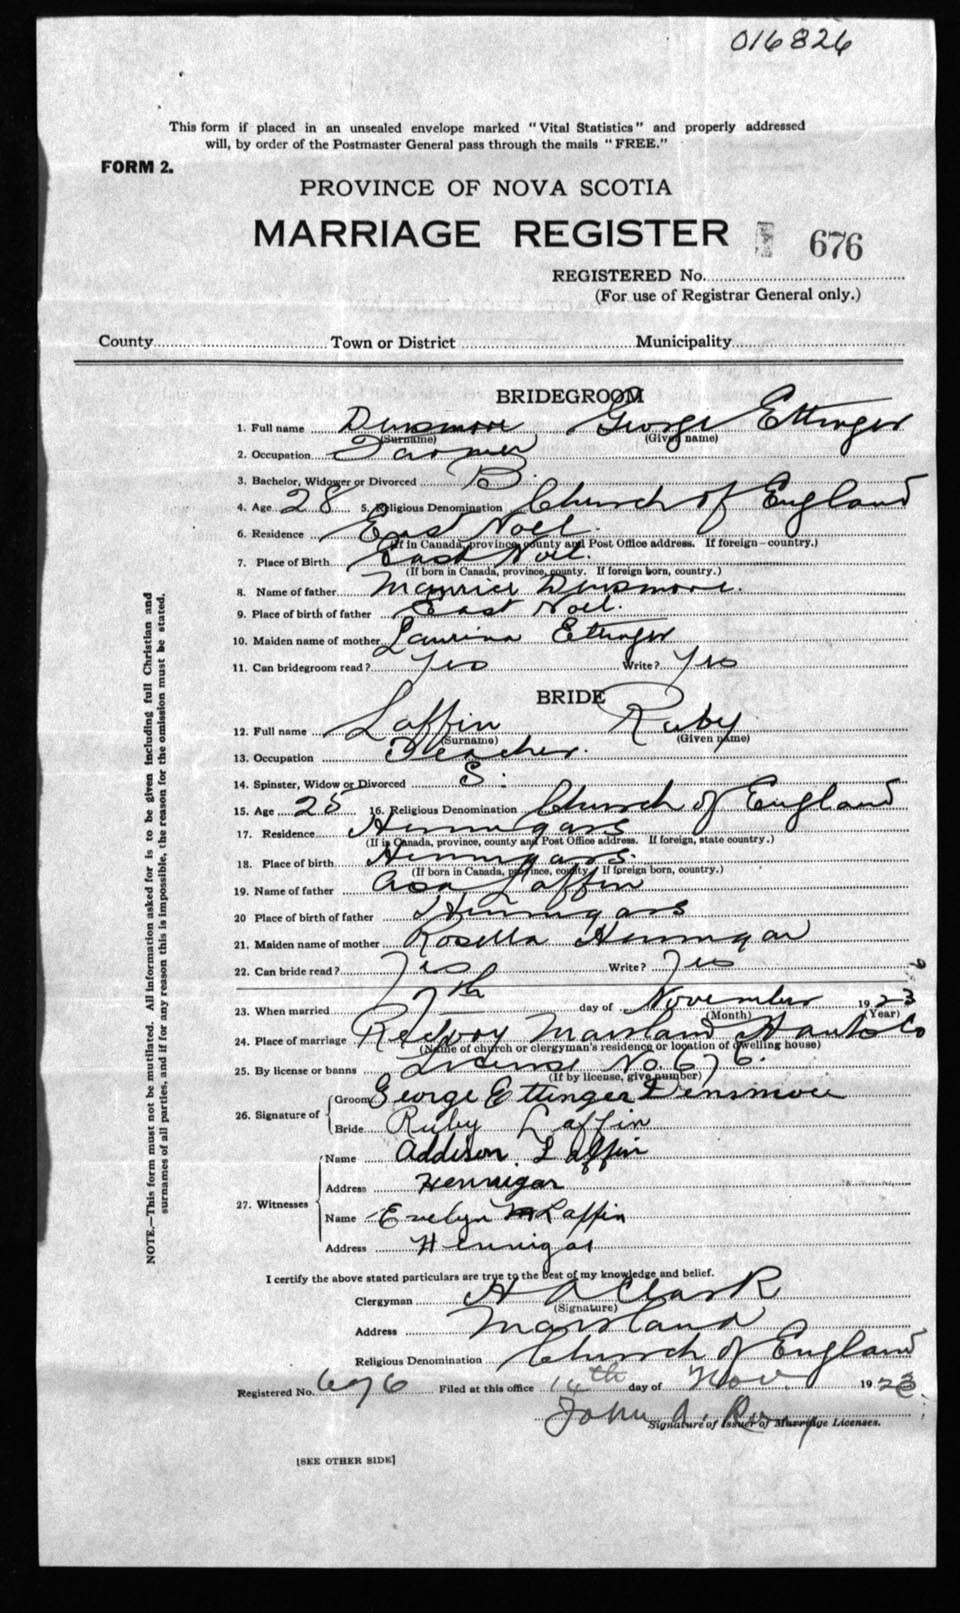 016826
This form if placed in an unsealed envelope marked "Vital Statistics" and properly addressed
will, by order of the Postmaster General pass through the mails "FREE."
FORM 2.
PROVINCE OF NOVA SCOTIA
MARRIAGE REGISTER 676
REGISTERED No.
(For use of Registrar General only.)
County Town or District Municipality
BRIDEGROOM
1. Full name Densmore George Ettinger
(Surname) (Given name)
2. Occupation Farmer
3. Bachelor, Widower or Divorced B.
4. Age 28 5. Religious Denomination Church of England
6. Residence East Noel.
(If in Canada, province, county and Post Office address. If foreign—country.)
7. Place of Birth East Noel
(If born in Canada, province, county. If foreign born, country.)
8. Name of father Maurice Densmore.
9. Place of birth of father East Noel.
10. Maiden name of mother Laurina Ettinger
11. Can bridegroom read? Yes Write? Yes
BRIDE
12. Full name Laffin Ruby
(Surname) (Given name)
13. Occupation Teacher.
14. Spinster, Widow or Divorced S.
15. Age 25 16. Religious Denomination Church of England
17. Residence Hennigars
(If in Canada, province, county and Post Office address. If foreign, state country.)
18. Place of birth Hennigars.
(If born in Canada, province, county. If foreign born, country.)
19. Name of father Asa Laffin
20 Place of birth of father Hennigars
21. Maiden name of mother Rosella Hennigar
22. Can bride read? Yes Write? Yes
23. When married 7th day of November 1923
(Month) (Year)
24. Place of marriage Rectory Maitland Hants Co
(Name of church or clergyman's residence or location of dwelling house)
25. By license or banns License No. 676.
(If by license, give number)
26. Signature of Groom George Ettinger Densmore
Bride Ruby Laffin
27. Witnesses Name Addison Laffin
Address Hennigar
Name Evelyn M Laffin
Address Hennigar
I certify the above stated particulars are true to the best of my knowledge and belief.
Clergyman H A Clark
(Signature)
Address Maitland
Religious Denomination Church of England
Registered No. 676 Filed at this office 14th day of Nov. 1923
John A.
Signature of Issuer of Marriage Licenses.
[SEE OTHER SIDE]
NOTE.—This form must not be mutilated. All information asked for is to be given including full Christian and
surnames of all parties, and if for any reason this is impossible, the reason for the omission must be stated.